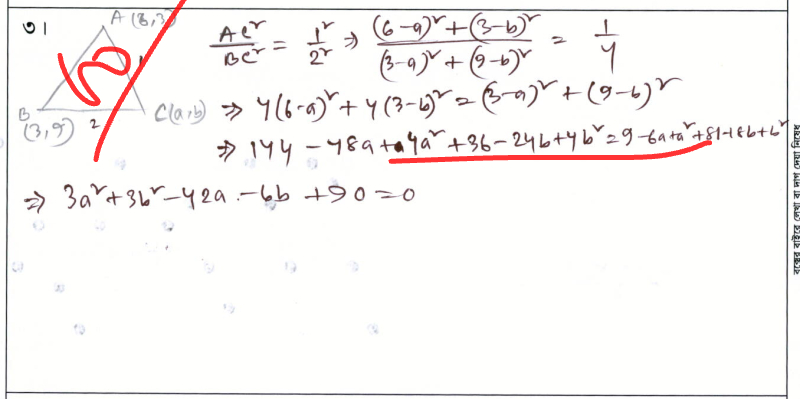 ৩।
A (6,3)
B
(3,9)
2
C(a,b)
AC²/BC² = 1²/2² ⇒ ((6-a)²+(3-b)²)/((3-a)²+(9-b)²) = 1/4
⇒ 4(6-a)²+4(3-b)²=(3-a)²+(9-b)²
⇒ 144-48a+4a²+36-24b+4b²=9-6a+a²+81-18b+b²
⇒ 3a²+3b²-42a-6b+90=0
বক্সের বাইরে লেখা বা দাগ দেয়া নিষেধ